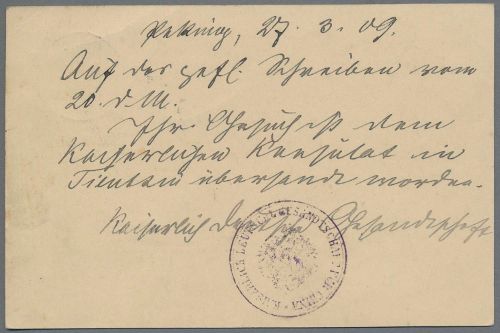 Peking, 27. 3. 09.
Auf das gefl. Schreiben vom
20. d. M.
Ihr Gesuch ist dem
Kaiserlichen Konsulat in
Tientsin übersandt worden.
Kaiserlich Deutsche Gesandtschaft
KAISERLICH DEUTSCHE GESANDTSCHAFT FÜR CHINA